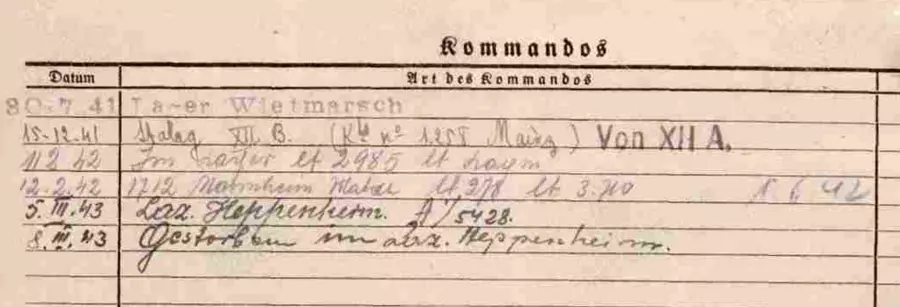 Kommandos
Datum Art des Kommandos
30.7.41 Lager Wietmarsch
15.12.41 Stalag XII B. (Kdo no 1258 Mainz) Von XII A.
11 2 42 Im Lager lt 2985 lt
12.2.42 1712 Mannheim lt 278 lt 3.710 1.6.42
5.III.43 Laz. Heppenheim. A/5428.
8.III.43 Gestorben im Laz. Heppenheim.